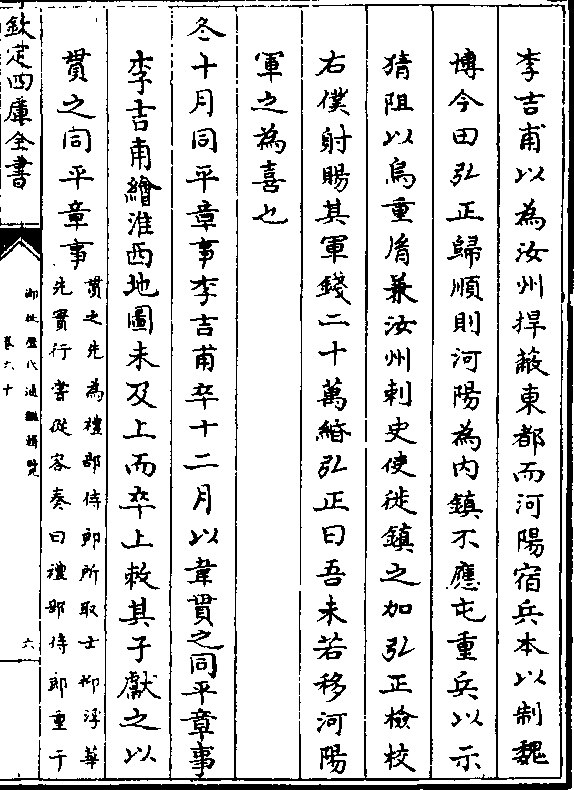 李吉甫以為汝州捍蔽東都而河陽宿兵本以制魏
博今田弘正歸順則河陽為內鎮不應屯重兵以示
猜阻以烏重𦙍兼汝州刺史使徙鎮之加弘正檢校
右僕射賜其軍錢二十萬緡弘正曰吾未若移河陽
軍之為喜也
冬十月同平章事李吉甫卒十二月以韋貫之同平章事
李吉甫繪淮西地圖未及上而卒上敕其子獻之以
貫之同平章事
貫之先為禮部侍郎所取士抑浮華
先實行嘗從容奏曰禮部侍郎重于
欽定四庫全書
御批歷代通鑑輯覽
卷六十
六